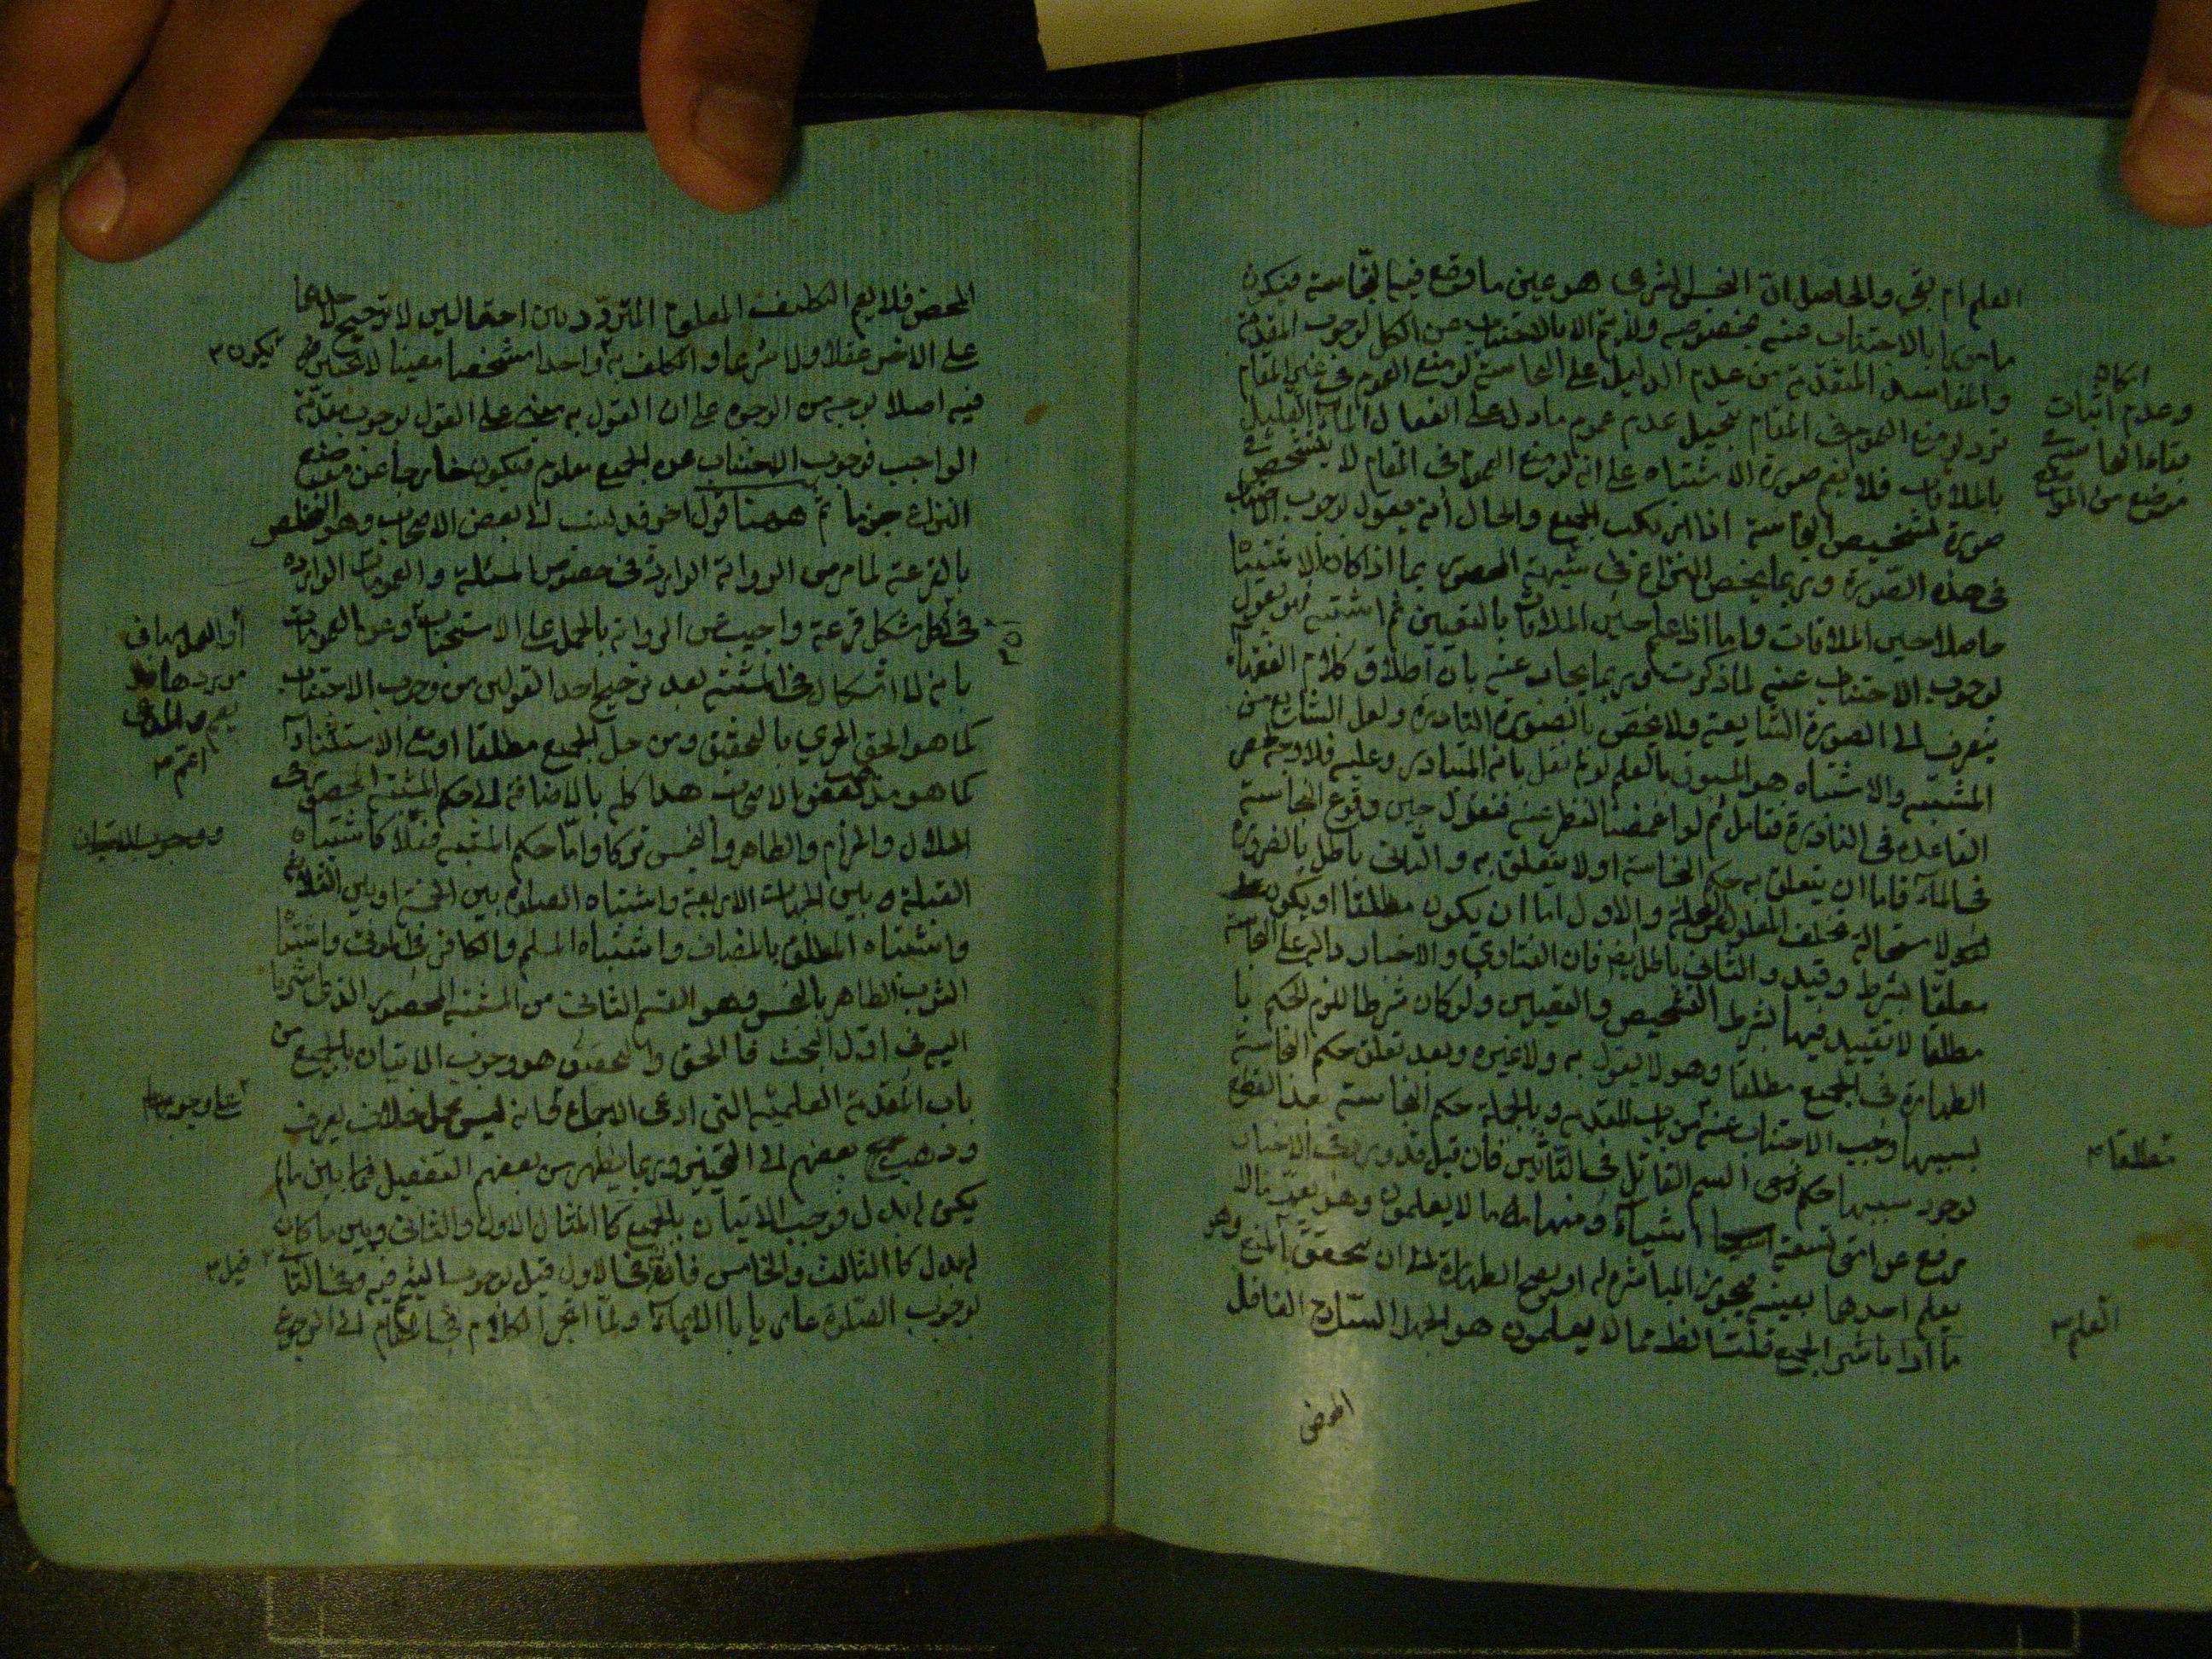 العلم ام بقي والحاصل ان النجس الشرعي هو عين ما وقع فيها لنجاسته فيكون
مامورا بالاجتناب عنه بخصوصه ولا يتم الا بالاجتناب عن الكل لوجوب المقدمة
والمفاسد المتقدمة من عدم الدليل على النجاسة لو منع العموم في غير المقام
ترد لو منع العموم في المقام بتخيل عدم عموم ما دل على انفعال الماء القليل
بالملاقات فلا يعم صورة الاشتباه على انه لو منع العموم في المقام لا يتشخص
صورة لتشخيص النجاسة اذا ارتكب الجميع والحال انه يقول لوجوب اجتناب
في هذه الصورة وربما يخص النزاع في شبهة المحصور بما اذا كان الاشتباه
حاصلا حين الملاقات واما اذا علم حين الملاقات بالتعيين ثم اشتبه فهو يقول
لوجوب الاجتناب عنه لما ذكرت وربما يجاب عنه بان اطلاق كلام الفقهاء
ينصرف الى الصورة الشايعة ولا يختص بالصورة النادرة ولعل الشايع من
المشتبه والاشتباه هو المسبوق بالعلم لو لم نقل بانه المتبادر وعليه فلا وجه
القاعدة في النادرة فتامل ثم لو اغمضنا النظر عنه فنقول حين وقوع النجاسة
في الماء فاما ان يتعلق به حكم النجاسة او لا يتعلق به والثاني باطل بالضرورة
لاستحالة تخلف المعلول عن العلة والاول اما ان يكون مطلقا او يكون
معلقا بشرط وقيد والثاني باطل ايضا فان الفتاوي والاخبار دالة على النجاسة
مطلقا لا تقييد فيها بشرط التشخيص والتعيين ولو كان شرطا للزم الحكم با
الطهارة في الجميع مطلقا وهو لا يقول به ولا غيره وبعد تعلق حكم النجاسة
بسببها وجب الاجتناب عنه من باب المقدمة وبالجملة حكم النجاسة بعد القطع
لوجود سببها حكم السم القاتل في التاثير فان قيل قد ورد في الاخبار
رفع عن امتي تسعة اشياء ومنها ما لا يعلمون وهو بعد ما لا
يعلم احدهما بعينه يجوز المباشرة له او يصح الطهارة الى ان يتحقق المنع وهو
ما اذا باشر الجميع قلت الظ مما لا يعلمون هو الجهل الساذج الغافل
المحض
وعدم اثبات
بقاء النجاسة في
موضع من المواضع
تعلقها م
العلم م
المحض فلا يعم التكليف المعلوم المتردد بين احتمالين لا ترجيح لاحدهما
على الاخر عقلا ولا شرعا والمكلف به واحدا مشخصا معينا لا تخيير
فيه اصلا بوجه من الوجوه على ان القول به مبني على القول بوجوب مقدمة
الواجب فوجوب الاجتناب عن الجميع معلوم فيكون خارجا عن موضع
النزاع جزما ثم ههنا قول اخر قد نسب الى بعض الاصحاب وهو التخلص
بالقرعة لما مر من الرواية الواردة في خصوص المسئلة والعمومات الواردة
في ان لكل مشكل قرعة واجيب عن الرواية بالحمل على الاستحباب وعن العمومات
بانه لا اشكال في المشتبه بعد ترجيح احد القولين من وجوب الاجتناب
كما هو الحق الحري بالتحقيق ومن حل الجميع مطلقا او مع الاستثناء
كما هو مذهب بعض الاصحاب هذا كله بالاضافة الى حكم المشتبه المحصور في
الحلال والحرام والطاهر والنجس تركا واما حكم المشتبه فعلا كاشتباه
القبلة بين الجهات الاربعة واشتباه الصلوة بين الخمسة او بين الثلاثة
واشتباه المطلق بالمضاف واشتباه المسلم والكافر في الموتى واشتباه
الثوب الطاهر بالنجس وهو القسم الثاني من المشتبه المحصور الذي اشرنا
اليه في اول البحث فالحق والتحقيق هو وجوب الاتيان بالجميع من
باب المقدمة العلمية التي ادعي الاجماع لانه ليس محل خلاف يعرف
وذهب بعضهم الى التخيير وربما يظهر من بعضهم التفصيل فيما بين ما لم
يكن له بدل فوجب الاتيان بالجميع كالمثال الاول والثاني وبين ما كان
له بدل كالثالث والخامس فانه في الاول قيل بوجوب التيمم فيه وفي الثاني
بوجوب الصلوة عاريا بالايماء ولما انجر الكلام في المقام الى الرجوع
يكون م
او العمل بها في
اعم م
ووجوب الاتيان
على وجوبها
قيل م